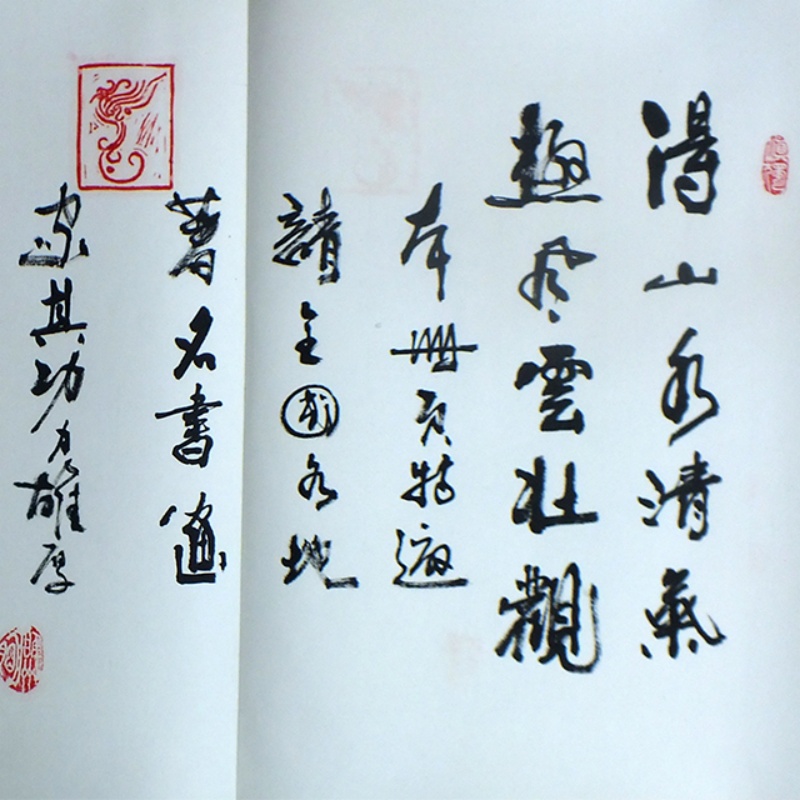 得山水清氣
極風雲壯觀
本冊頁特邀
請全國各地
著名書畫
家其功力雄厚